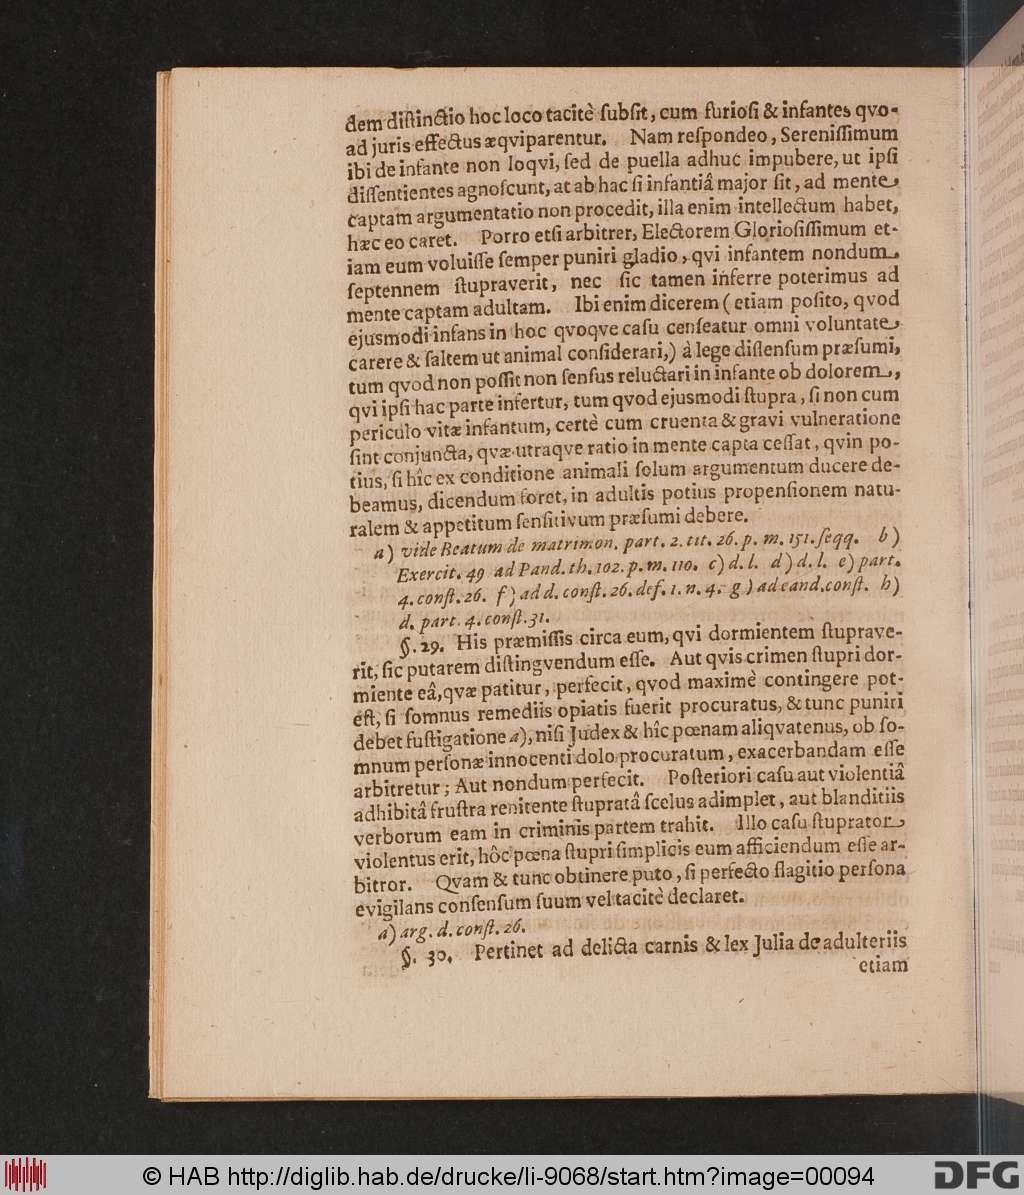 dem diſtinctio hoc loco tacitè ſubſit, cum furioſi & infantes qvo-
ad juris effectus æqviparentur. Nam reſpondeo, Sereniſſimum
ibi de infante non loqvi, ſed de puella adhuc impubere, ut ipſi
diſſentientes agnoſcunt, at ab hac ſi infantiâ major ſit, ad mente
captam argumentatio non procedit, illa enim intellectum habet,
hæc eo caret. Porro etſi arbitrer, Electorem Glorioſiſſimum et-
iam eum voluiſſe ſemper puniri gladio, qvi infantem nondum
ſeptennem ſtupraverit, nec ſic tamen inferre poterimus ad
mente captam adultam. Ibi enim dicerem (etiam poſito, qvod
ejusmodi infans in hoc qvoqve caſu cenſeatur omni voluntate
carere & ſaltem ut animal conſiderari,) à lege diſſenſum præſumi,
tum qvod non poſſit non ſenſus reluctari in infante ob dolorem,
qvi ipſi hac parte infertur, tum qvod ejusmodi ſtupra, ſi non cum
periculo vitæ infantum, certè cum cruenta & gravi vulneratione
ſint conjuncta, qvæ utraqve ratio in mente capta ceſſat, qvin po-
tius, ſi hîc ex conditione animali ſolum argumentum ducere de-
beamus, dicendum foret, in adultis potius propenſionem natu-
ralem & appetitum ſenſitivum præſumi debere.
a) vide Beatum de matrimon. part. 2. tit. 26. p. m. 151. ſeqq. b)
Exercit. 49 ad Pand. th. 102. p. m. 110. c) d. l. d) d. l. e) part.
4. conſt. 26. f) ad d. conſt. 26. def. 1. n. 4. g) ad eand. conſt. h)
d. part. 4. conſt. 31.
§. 29. His præmiſſis circa eum, qvi dormientem ſtuprave-
rit, ſic putarem diſtingvendum eſſe. Aut qvis crimen ſtupri dor-
miente eâ, qvæ patitur, perfecit, qvod maximè contingere pot-
eſt, ſi ſomnus remediis opiatis fuerit procuratus, & tunc puniri
debet fuſtigatione a), niſi Judex & hîc pœnam aliqvatenus, ob ſo-
mnum perſonæ innocenti dolo procuratum, exacerbandam eſſe
arbitretur; Aut nondum perfecit. Poſteriori caſu aut violentiâ
adhibitâ fruſtra renitente ſtupratâ ſcelus adimplet, aut blanditiis
verborum eam in criminis partem trahit. Illo caſu ſtuprator
violentus erit, hôc pœna ſtupri ſimplicis eum afficiendum eſſe ar-
bitror. Qvam & tunc obtinere puto, ſi perfecto flagitio perſona
evigilans conſenſum ſuum vel tacitè declaret.
a) arg. d. conſt. 26.
§. 30. Pertinet ad delicta carnis & lex Julia de adulteriis
etiam
© HAB http://diglib.hab.de/drucke/li-9068/start.htm?image=00094
DFG